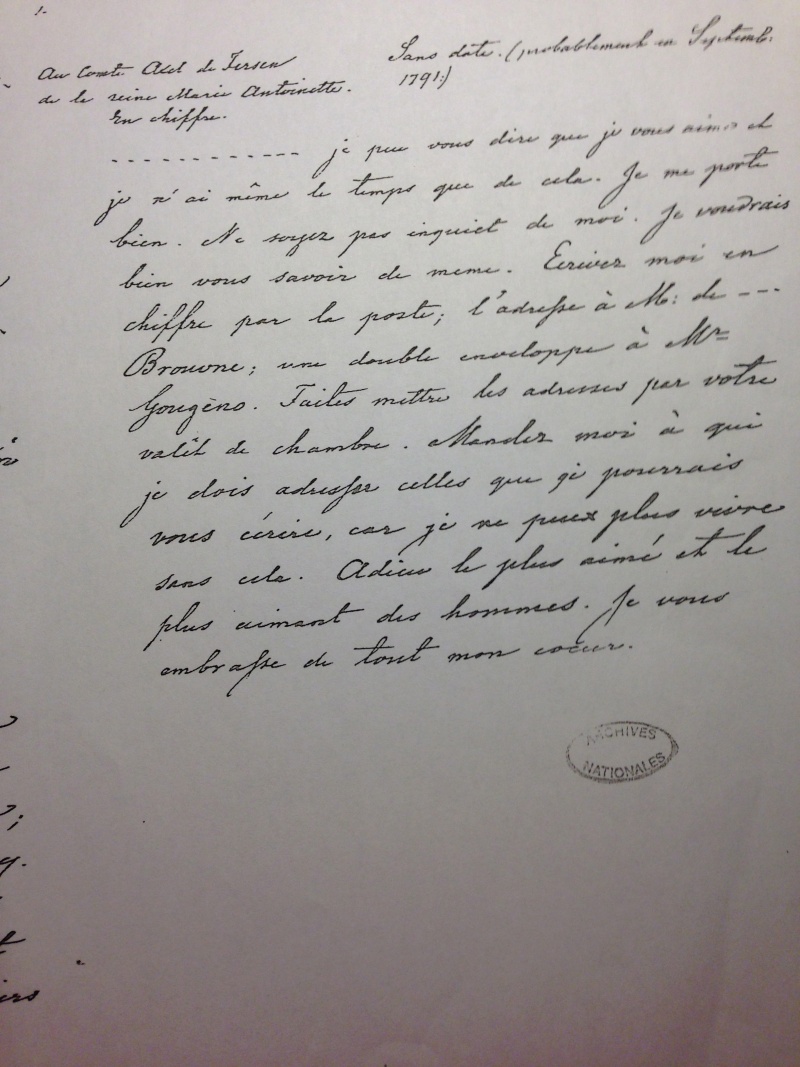 1.
Au Comte Axel de Fersen
de la reine Marie Antoinette.
En chiffre.
Sans date. (probablement en Septemb:
1791.)
- - - - - - - - - - - - je peu vous dire que je vous aime et
je n'ai même le temps que de cela. Je me porte
bien. Ne soyez pas inquiet de moi. Je voudrais
bien vous savoir de meme. Ecrivez moi en
chiffre par la poste; l'adresse à M: de - - -
Browne; une double enveloppe à Mr
Gougèno. Faites mettre les adresses par votre
valêt de chambre. Mandez moi à qui
je dois adresser celles que je pourrais
vous écrire, car je ne peux plus vivre
sans cela. Adieu le plus aimé et le
plus aimant des hommes. Je vous
embrasse de tout mon coeur.
ARCHIVES
NATIONALES